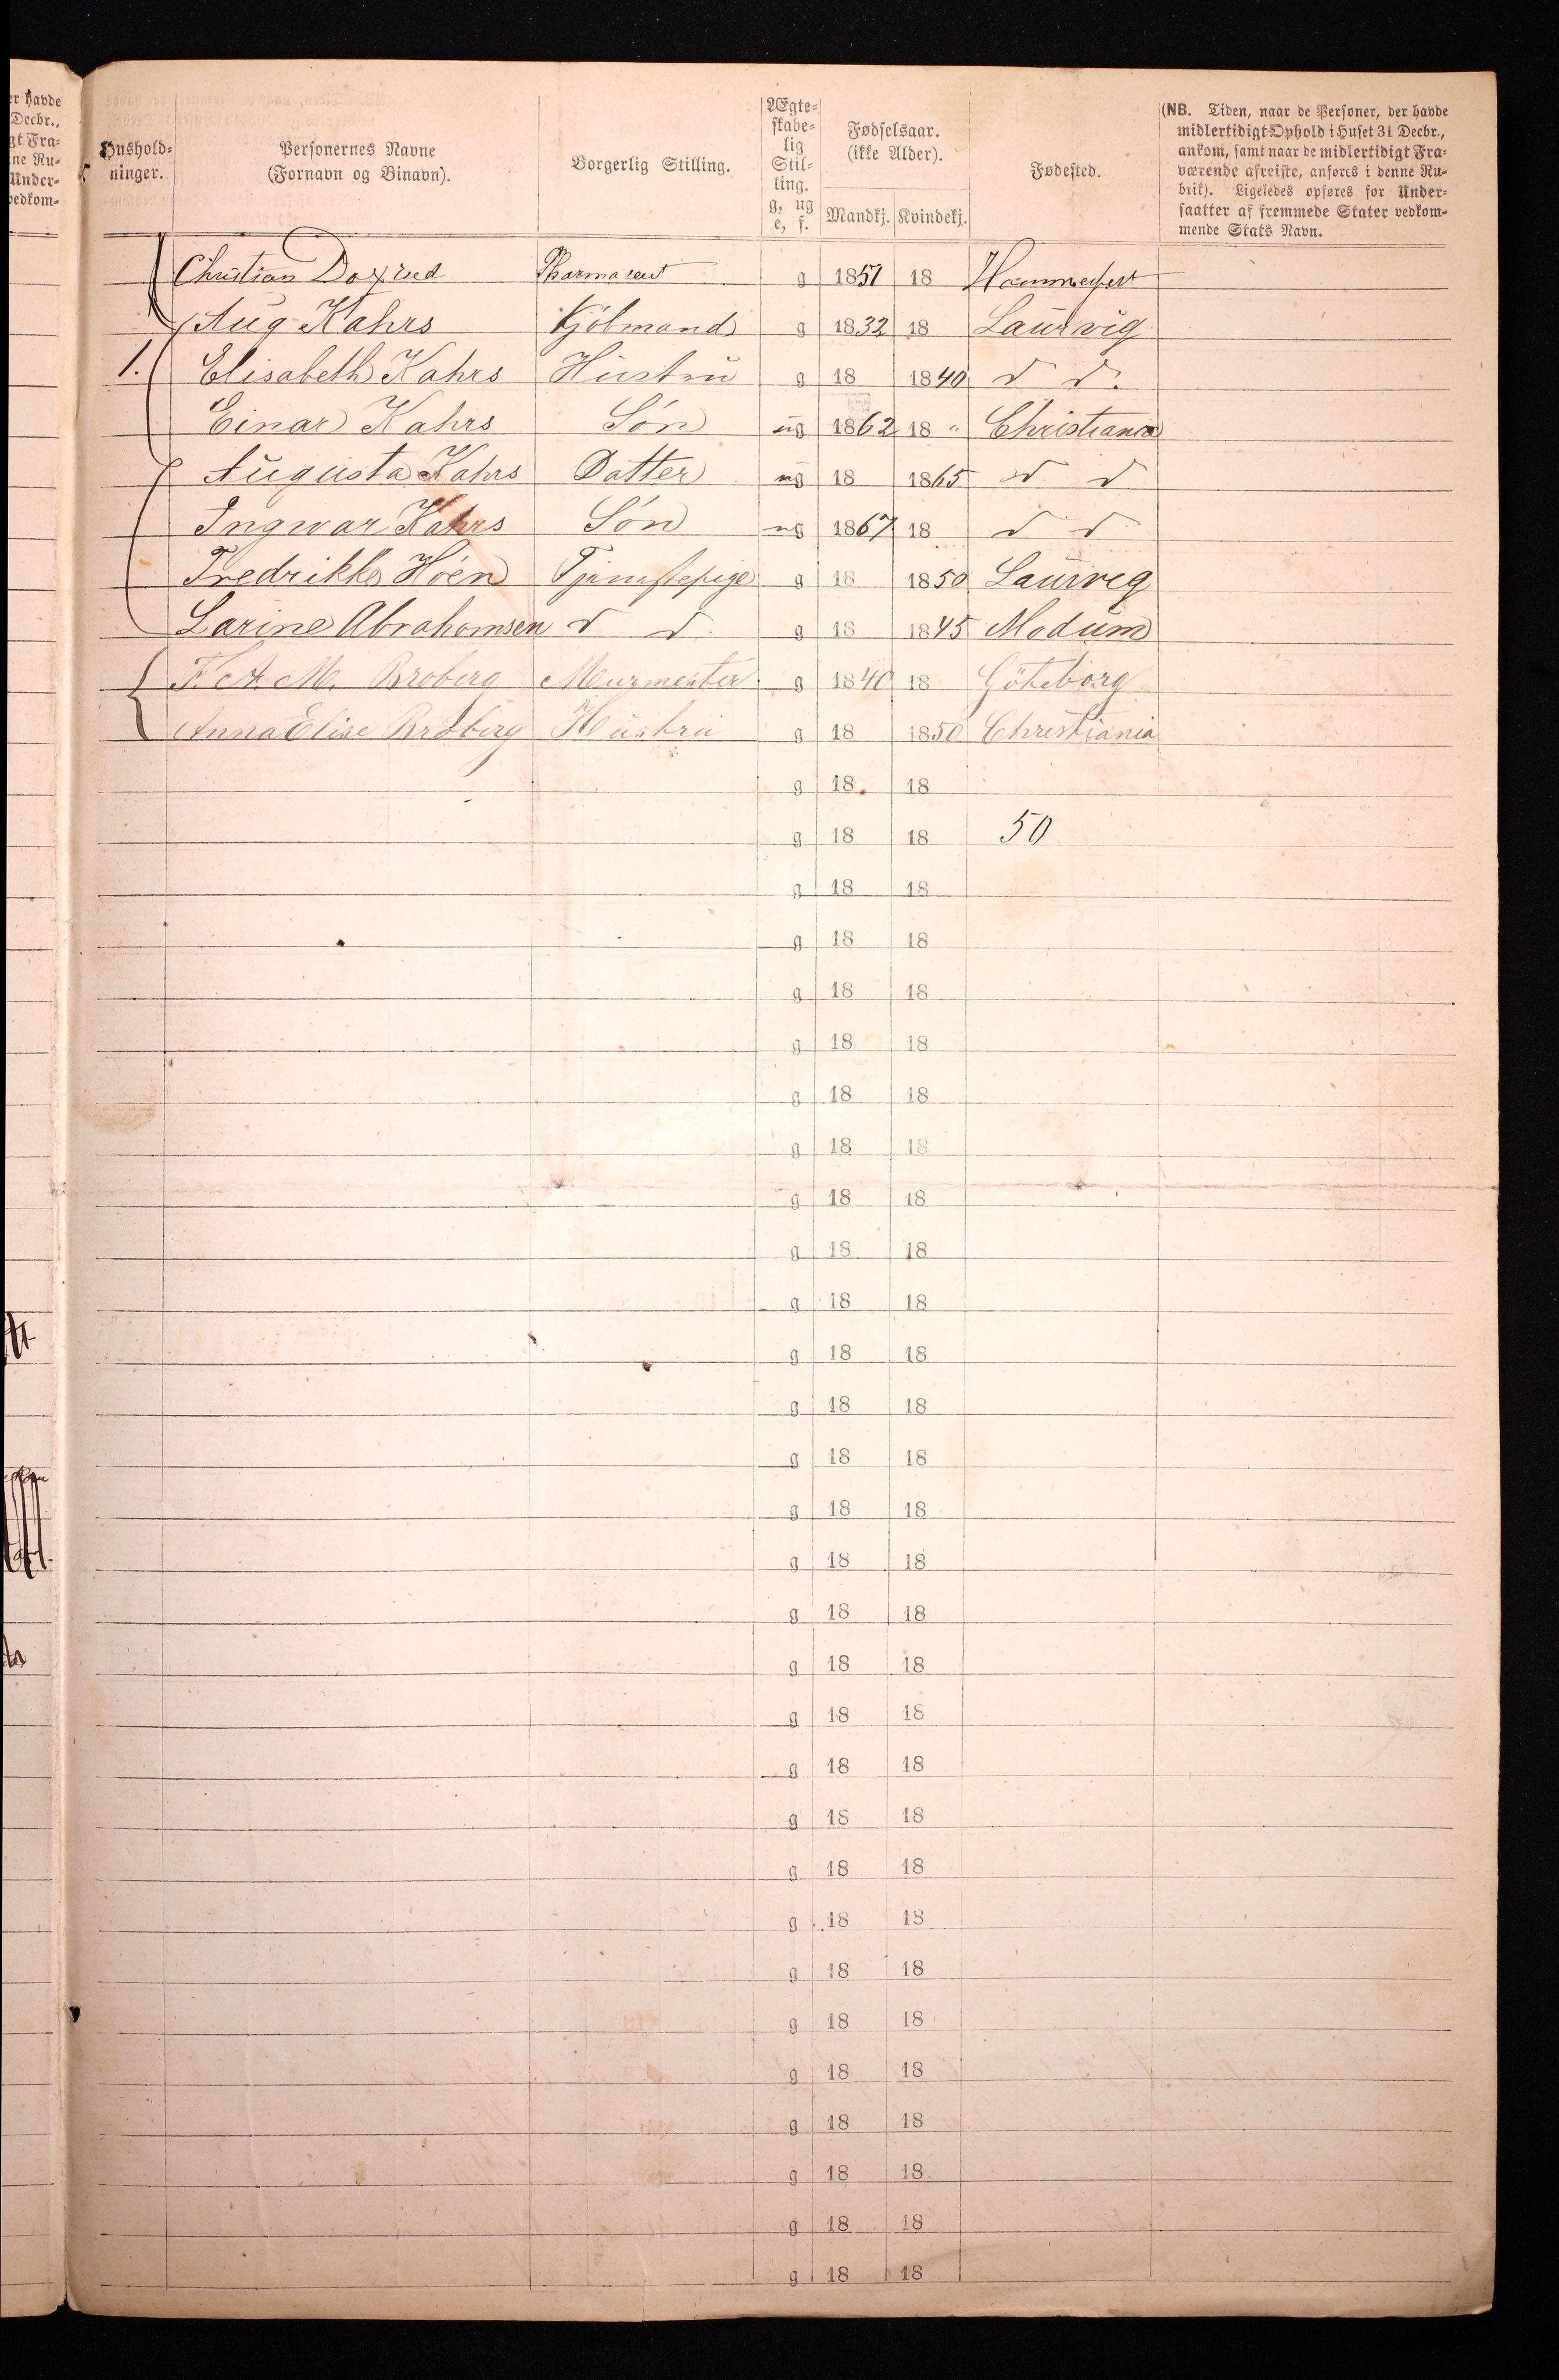 Hushold-
ninger.
Personernes Navne
(Fornavn og Binavn).
Borgerlig Stilling.
Ægte-
skabe-
lig
Stil-
ling.
g, ug
e, f.
Fødselsaar.
(ikke Alder).
Mandkj. Kvindekj.
Fødested.
(NB. Tiden, naar de Personer, der havde
midlertidigt Ophold i Huset 31 Decbr.,
ankom, samt naar de midlertidigt Fra-
værende afreiste, anføres i denne Ru-
brik). Ligeledes opføres for Under-
saatter af fremmede Stater vedkom-
mende Stats Navn.
Christian Doxrud Pharmaceut g 1851 18 Hammerfest
Aug Kahrs Kjöbmand g 1832 18 Laurvig
1. Elisabeth Kahrs Hustru g 18 1840 d d.
Einar Kahrs Són ug 1862 18 " Christiania
Augusta Kahrs Datter ug 18 1865 d d
Ingwar Kahrs Són ug 1867 18 d d
Fredrikke Hóen Tjenestepige g 18 1850 Laurvig
Larine Abrahamsen d d g 18 1845 Modum
F. A. M. Broberg Murmester g 1840 18 Göteborg
Anna Elise Broberg Hustru g 18 1850 Christiania
g 18 18
g 18 18 50
g 18 18
g 18 18
g 18 18
g 18 18
g 18 18
g 18 18
g 18 18
g 18 18
g 18 18
g 18 18
g 18 18
g 18 18
g 18 18
g 18 18
g 18 18
g 18 18
g 18 18
g 18 18
g 18 18
g 18 18
g 18 18
g 18 18
g 18 18
g 18 18
g 18 18
g 18 18
g 18 18
g 18 18